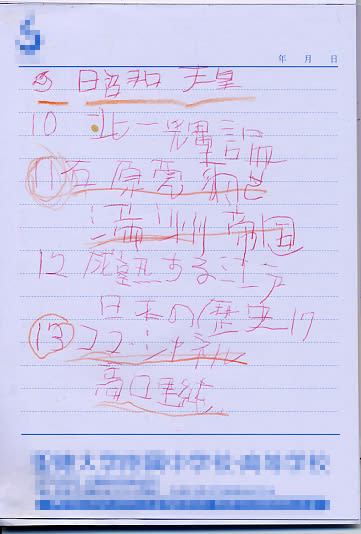 年 月 日
9 昭和 天皇
10 北一輝
11 石原莞爾と
満州帝国
12 成熟する江戸
日本の歴史17
13 ココ・シャネル
高口里純